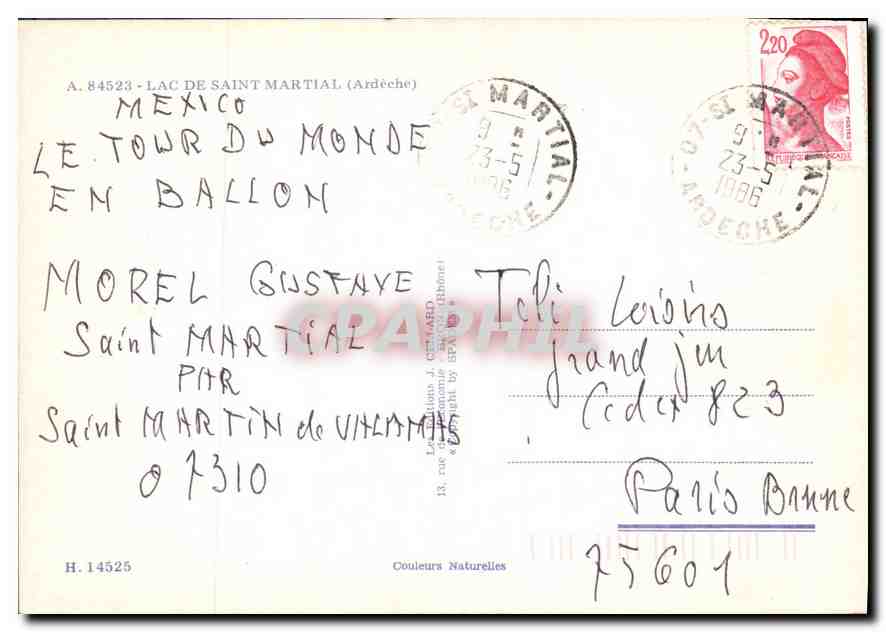 A. 84523 - LAC DE SAINT MARTIAL (Ardèche)
MEXICO
LE TOUR DU MONDE
EN BALLON
MOREL GUSTAVE
Saint MARTIAL
PAR
Saint MARTIN de VALAMAS
07310
H. 14525
Couleurs Naturelles
Les Editions J. CELLARD
13, rue de l'Economie - BRON (Rhône)
« Copyright by SPADEM »
CPAPHIL
ST MARTIAL
9 H
23-5
1986
ARDECHE
2,20
POSTES
07-ST MARTIAL
9 H
23-5
1986
ARDECHE
Télé Loisirs
grand jeu
Cedex 823
Paris Brune
75601